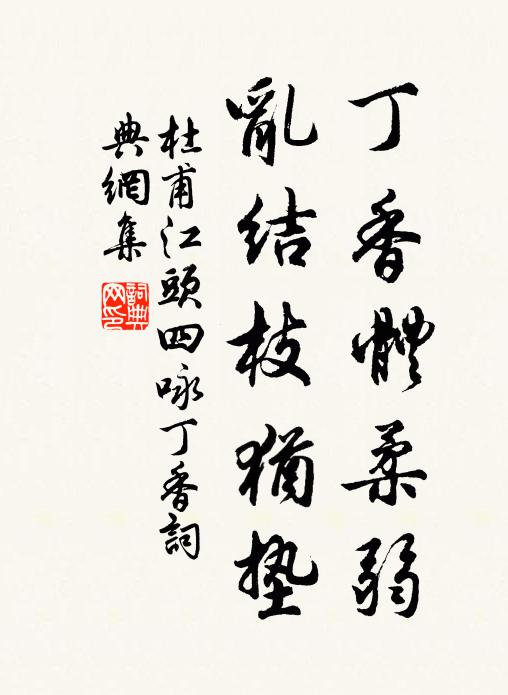 丁香體柔弱
亂結枝猶墊
杜甫江頭四咏丁香詞
典網集
詞典
网印